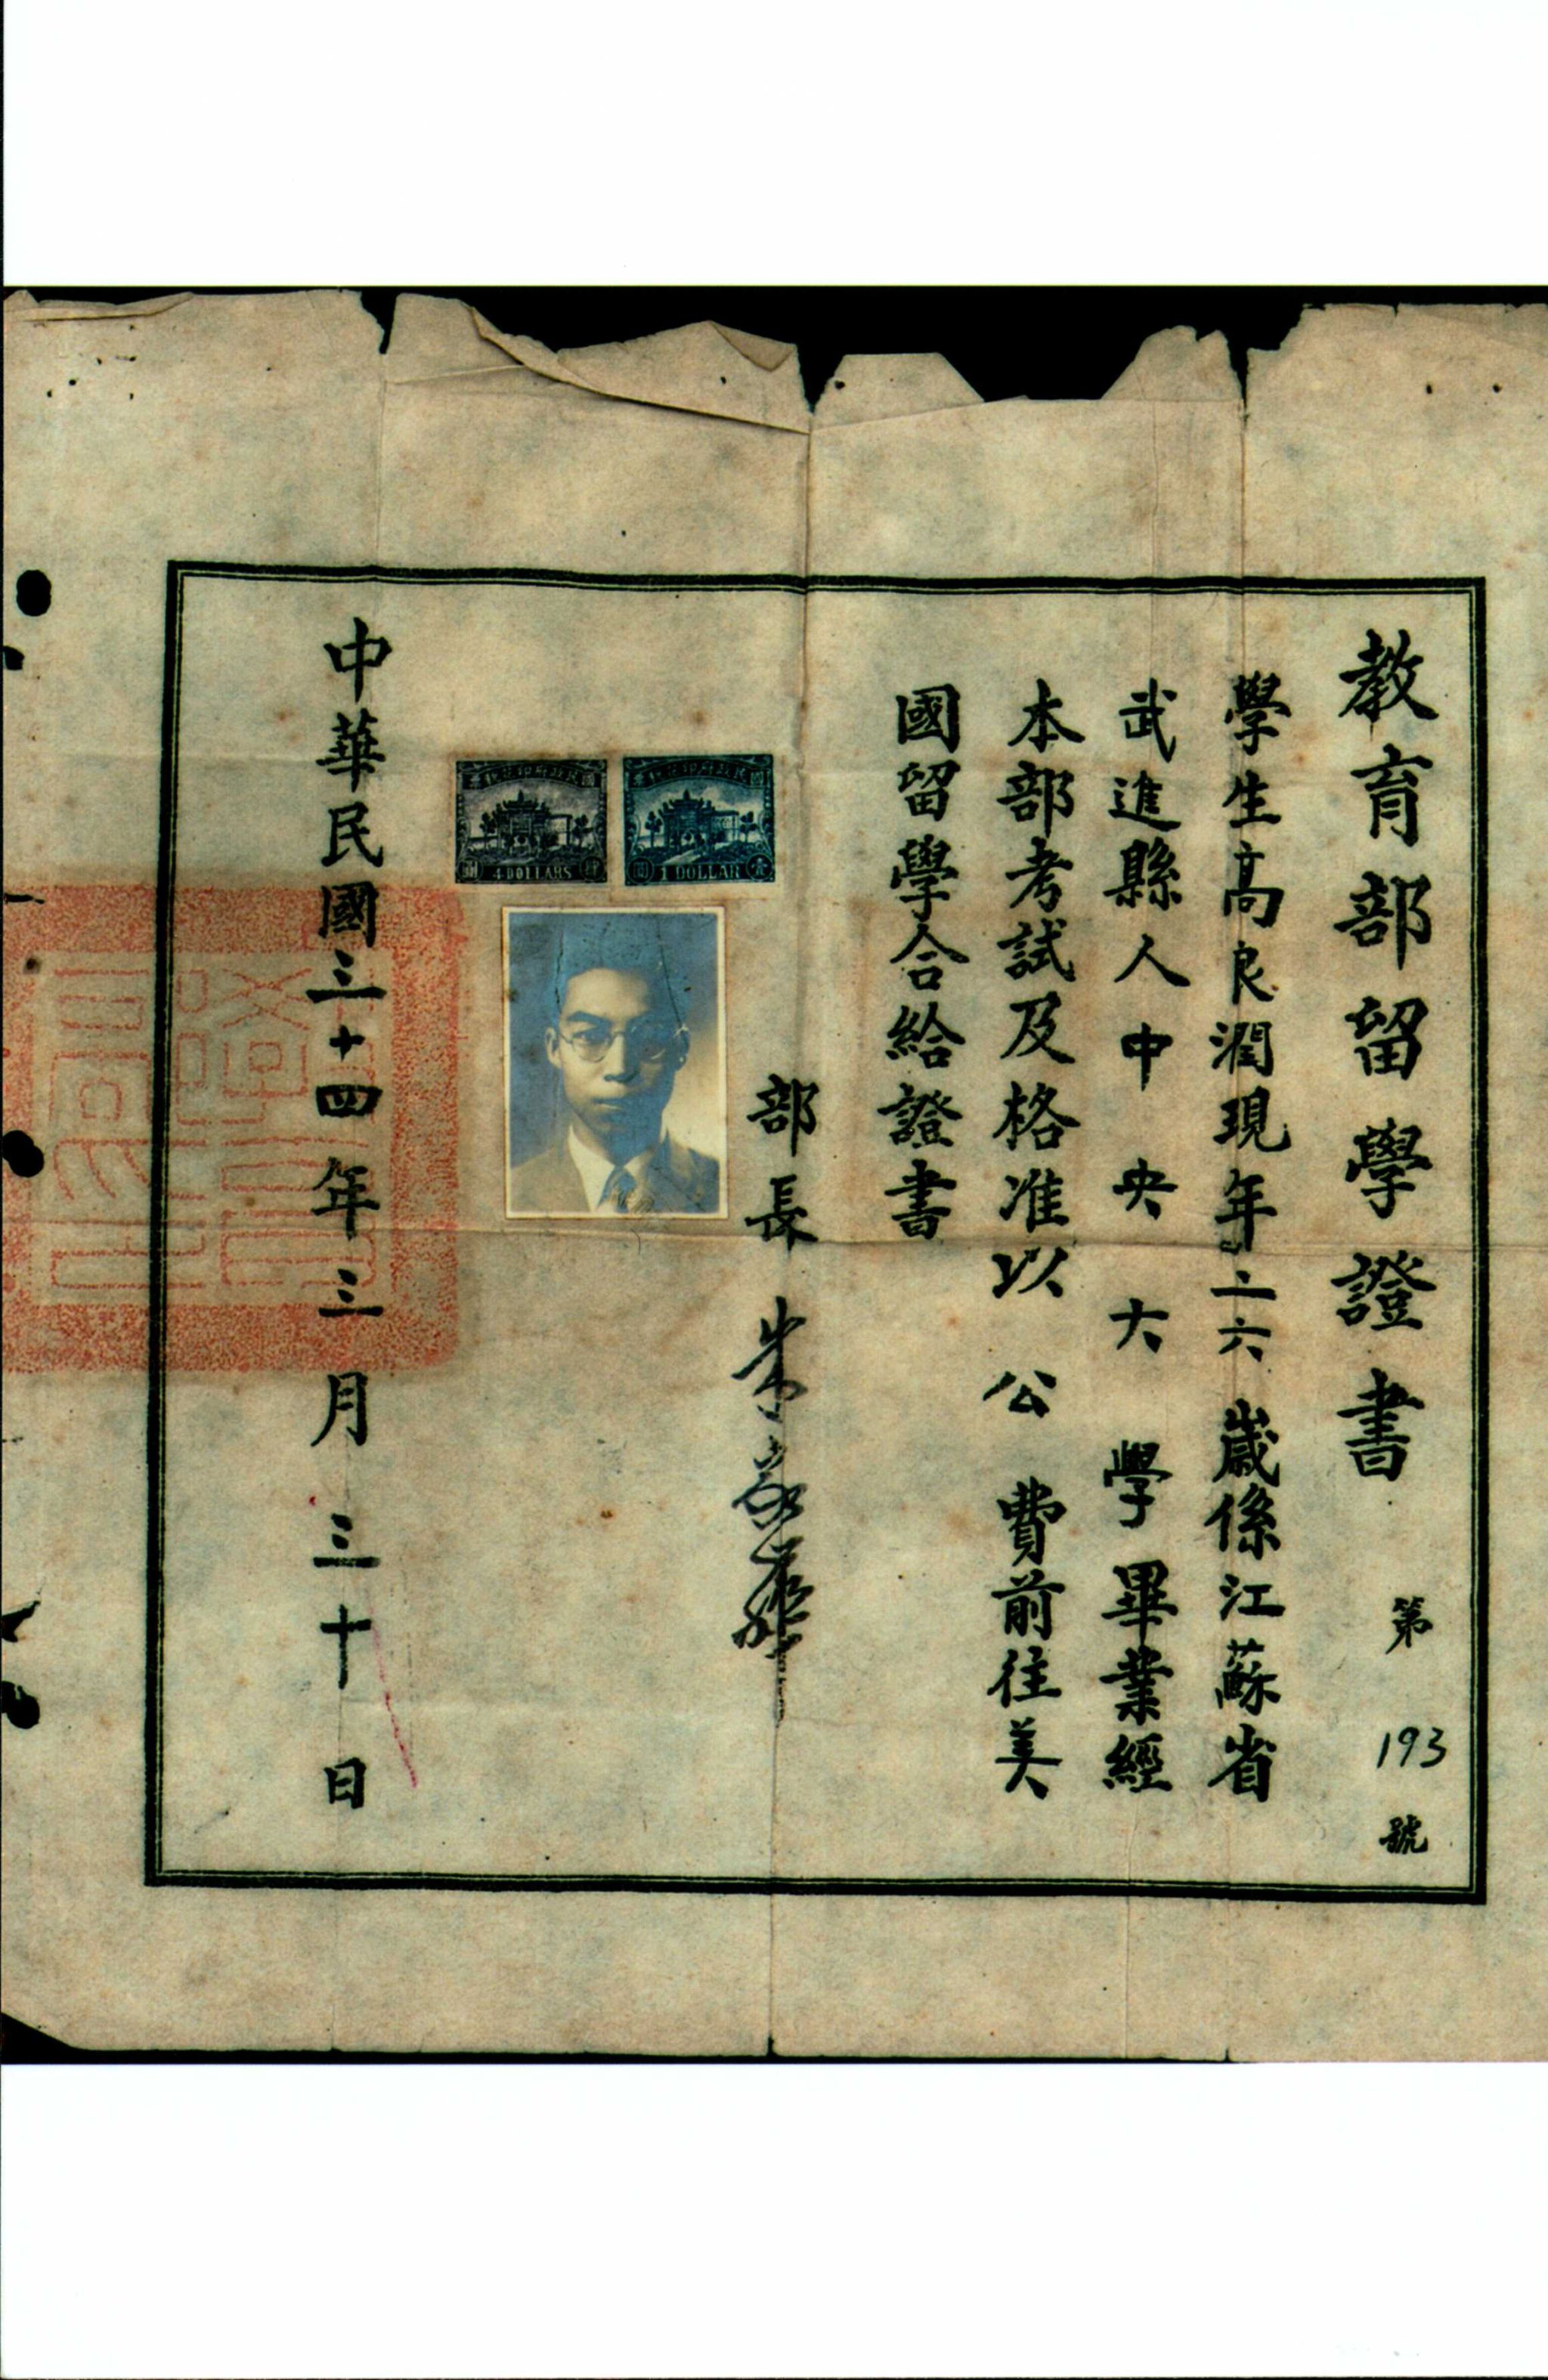 教育部留學證書
第 193 號
學生高良潤現年二六歲係江蘇省
武進縣人中央大學畢業經
本部考試及格准以公費前往美
國留學合給證書
部長 朱家驊
4 DOLLARS
1 DOLLAR
中華民國三十四年三月三十日